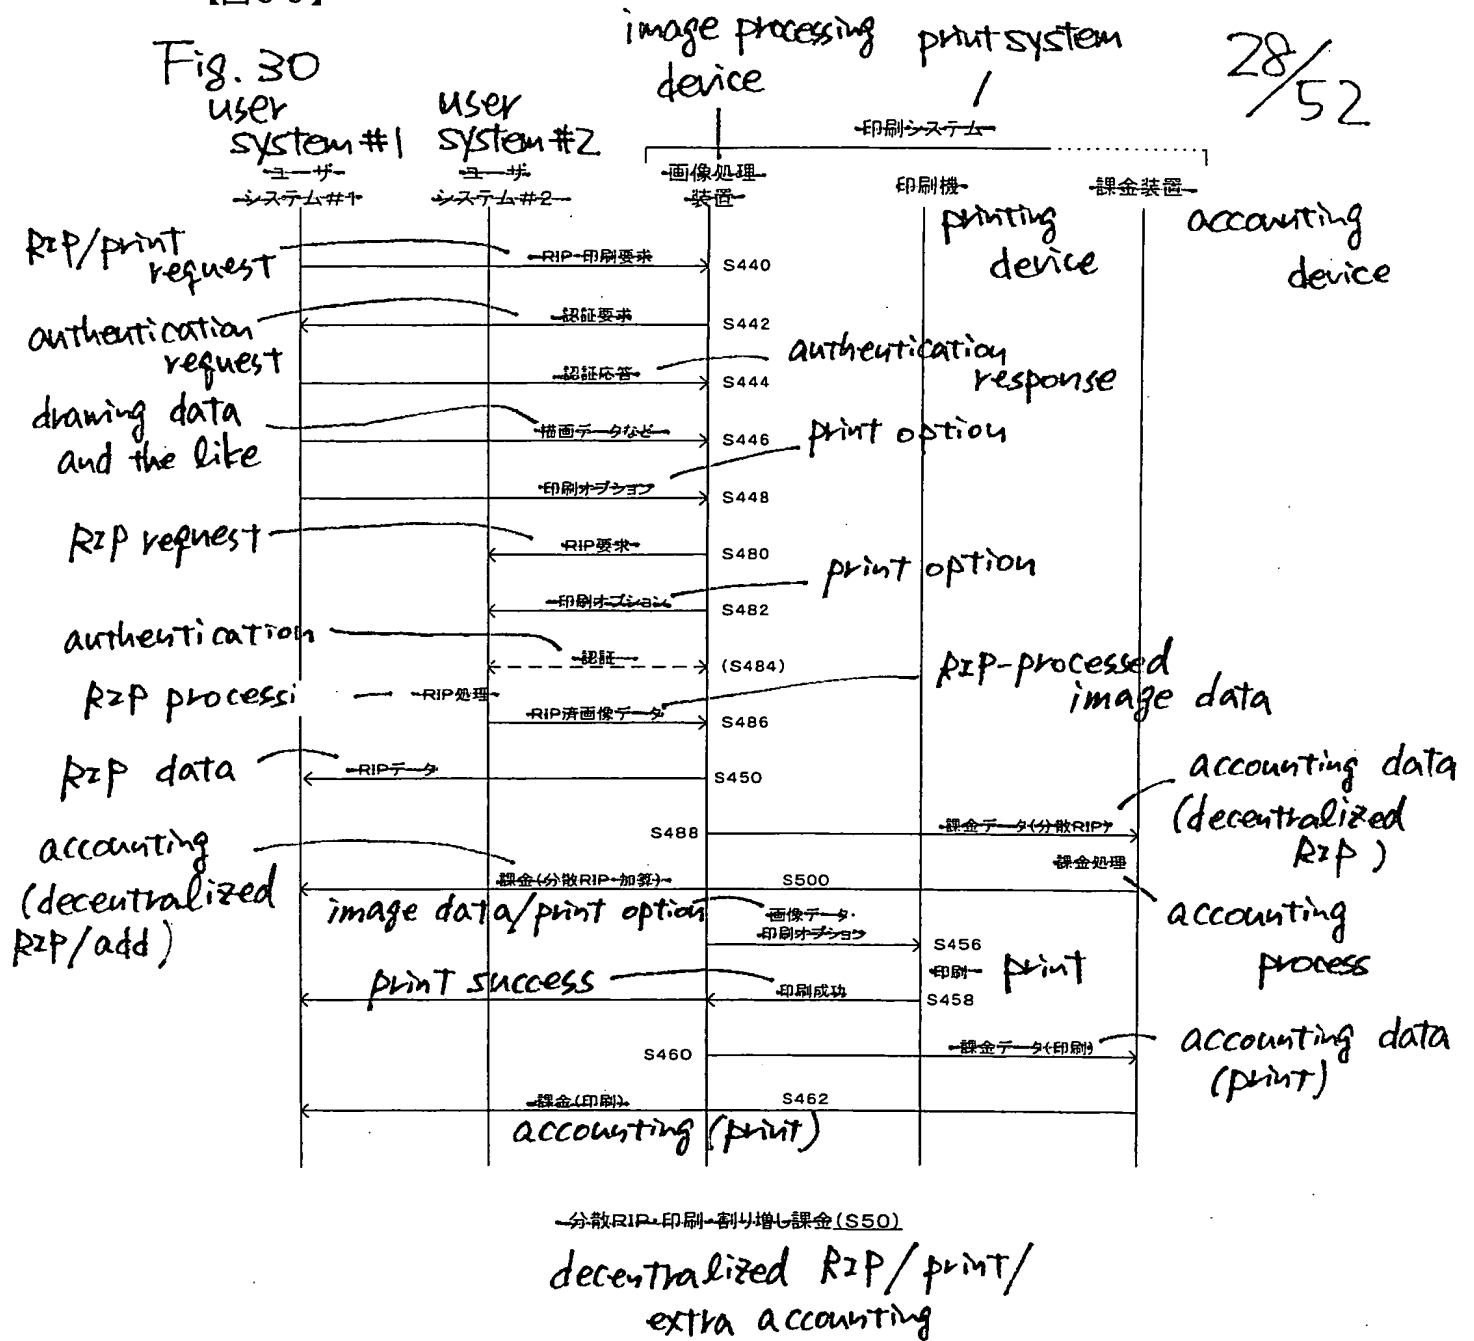 Fig. 30
28/52
image processing
device
print system
印刷システム
user
system #1
user
system #2
ユーザ
システム#1
ユーザ
システム#2
画像処理
装置
印刷機
課金装置
printing
device
accounting
device
RIP/print
request
RIP・印刷要求
S440
authentication
request
認証要求
S442
認証応答
S444
authentication
response
drawing data
and the like
描画データなど
S446
print option
印刷オプション
S448
RIP request
RIP要求
S480
印刷オプション
S482
print option
authentication
認証
(S484)
RIP processi
RIP処理
RIP済画像データ
S486
RIP-processed
image data
RIP data
RIPデータ
S450
S488
課金データ(分散RIP)
accounting data
(decentralized
RIP)
課金処理
accounting
process
accounting
(decentralized
RIP/add)
課金(分散RIP・加算)
S500
image data/print option
画像データ・
印刷オプション
S456
印刷
print
print success
印刷成功
S458
S460
課金データ(印刷)
accounting data
(print)
課金(印刷)
S462
accounting (print)
分散RIP・印刷・割り増し課金(S50)
decentralized RIP/print/
extra accounting